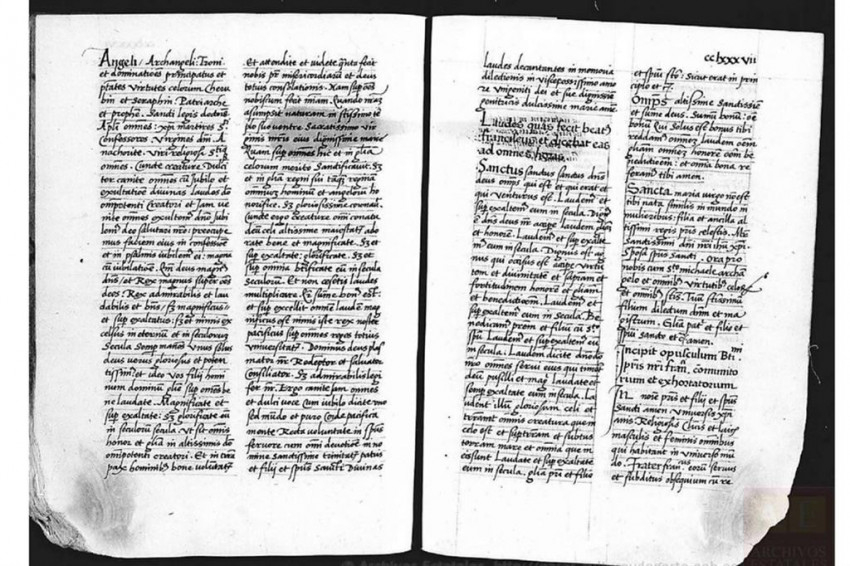 Angeli / Archangeli: Troni
et dominatiões principatus et
ptates Virtutes celorum. Cheru
bin et Seraphin. Patriarche
et prophe. Sancti legis doctores
Apli omnes: xpi martires S.
Confessores Virgines dni. A
nachorite Viri religiosi. Sti
omnes. Cuncte creature Dulci
ter cantate omnes cu Jubilo et
exultatione divinas laudes do
omnpotenti Creatori et Jam ve
nite omnes exultem dno Jubi
lem deo salutari nro: preocupe
mus faciem eius in confessione
et in psalmis iubilem ei: magna
cu iubilatione. Qm deus magn
dns / et Rex magnus super oes
deos: Rex admirabilis et lau
dabilis et bns / sz magnificus:
et sup exaltatus: sz et nimis ex
celsus in eternu et in seculorum
Secula Semp manes Vnus solus
deus verus gloriosus et poten
tissim et ideo Vos filij homi
num dominu cu sup omnes be
ne laudate. Magnificate et
sup exaltate: sz glorificate eu
in seculoru secula. Vt sit omis
honor et glia in altissimis do
omipotenti creatori. Et in terra
pax hominibs bone voluntatis
Et attendite et videte
nobis pr misericordiaru et deus
totius consolationis. Nam sup oes
nobiscum fecit miam. Quando
asumpsit naturam in
suo ventre Sacratissimo Vir
ginis mris eius dignissime marie
Quam sup omnes hic et in glia
celorum merito Sanctificavit. Sz
et in glia regni sui tanqz reginam
omniuz hominu et angeloru ho
norifice. Sz gloriosissime coronavit.
Cuncte ergo creature omi conata
deu celi altissime maiestatis ado
rate bene et magnificate. Sz et
sup exaltate: glorificate. Sz et
sup omnia benificate eu in secula
Seculoru. Et non cesetis laudes
multiplicare. Qr sume bonus est:
et sup excellit omnem laudem mag
nificus est nimis iste rex noster
pacificus sup omnes reges totius
universitatis. Dominus deus plas
mator nr. Redeptor et salvator
Consiliator. Sz admirabilis legi
fer nr. Ergo cantate jam omnes
et dulci voce cum iubilo dicite
sed mundo et puro Corde pacifica
mente Recta voluntate in spus
fervore cum omi devotione in no
mine Sanctissime trinitatis patris
et filij et spus Sancti Divinas
cclxxxvii
laudes decantantes in memoria
dilectionis in viscerosissimo amo
re Vnigeniti dei et sue dignissime
genitricis dulcissime marie
Laudes quas fecit beatus
franciscus et dicebat eas
ad omnes
Sanctus sanctus sanctus dns
deus omps qui est et qui erat et
qui Venturus est. Laudem et
sup exaltem eum in secula. Dign
e dns deus nr acipe laudem gliam
et honore. Laudem et sup exalte
m eum in secula. Dignus est ag
nus qui ocisus est acipe virtu
tem et divinitate et sapiam et
fortitudinem honore et gliam
et benedictionem. Laudem et
sup exaltem eum in secula. Be
nedicam prem et filiu cu sto
spu Laudem et sup exaltem eu
in secula. Laudem dicite dno do
nro omnes servi eius qui timetis
deu pusilli et magi laudate et
sup exaltate eum in secula. La
udent illu gloriosum celi et
terra et omnis creatura que in
celo est et sup terram et subtus
terram mare et omnia que in
eo sunt Laudate et sup exaltate
eum in secula. glia pri et filio
et spui sto: Sicut erat in prin
cipio et
Omps altissime Sanctissime
et sume deus. Sumu bonu: oe
bonu Qui Solus es bonus tibi
reddam omnem laudem oem
gliam omnem honore oem be
nedictione: et omia bona re
feram tibi amen.
Sancta maria virgo no est
tibi nata similis in mundo in
mulieribus: filia et ancilla al
tissimi regis pris celestis. Mr
santissimi dni nri ihu xpi.
Spōsa spus sancti. Ora pro
nobis cum sto michaele archa
gelo et omnib virtutib celor
et omnib stis. Tuu stissimu
filium dilectum dnm et ma
gistrum. Glia pat et filio et
spu sancto et amen.
Incipit opusculum Bti.
pris nri fran. commonito
rium et exhortatorium
IN noie pris et filij et spus
Sancti amen Vniversis xpi
anis Religiosis Clericis et laicis
masculis et feminis omnibus
qui habitant in Vniverso mu
do. Frater fran. eoru servus
et subditus obsequium cu re
ARCHIVOS